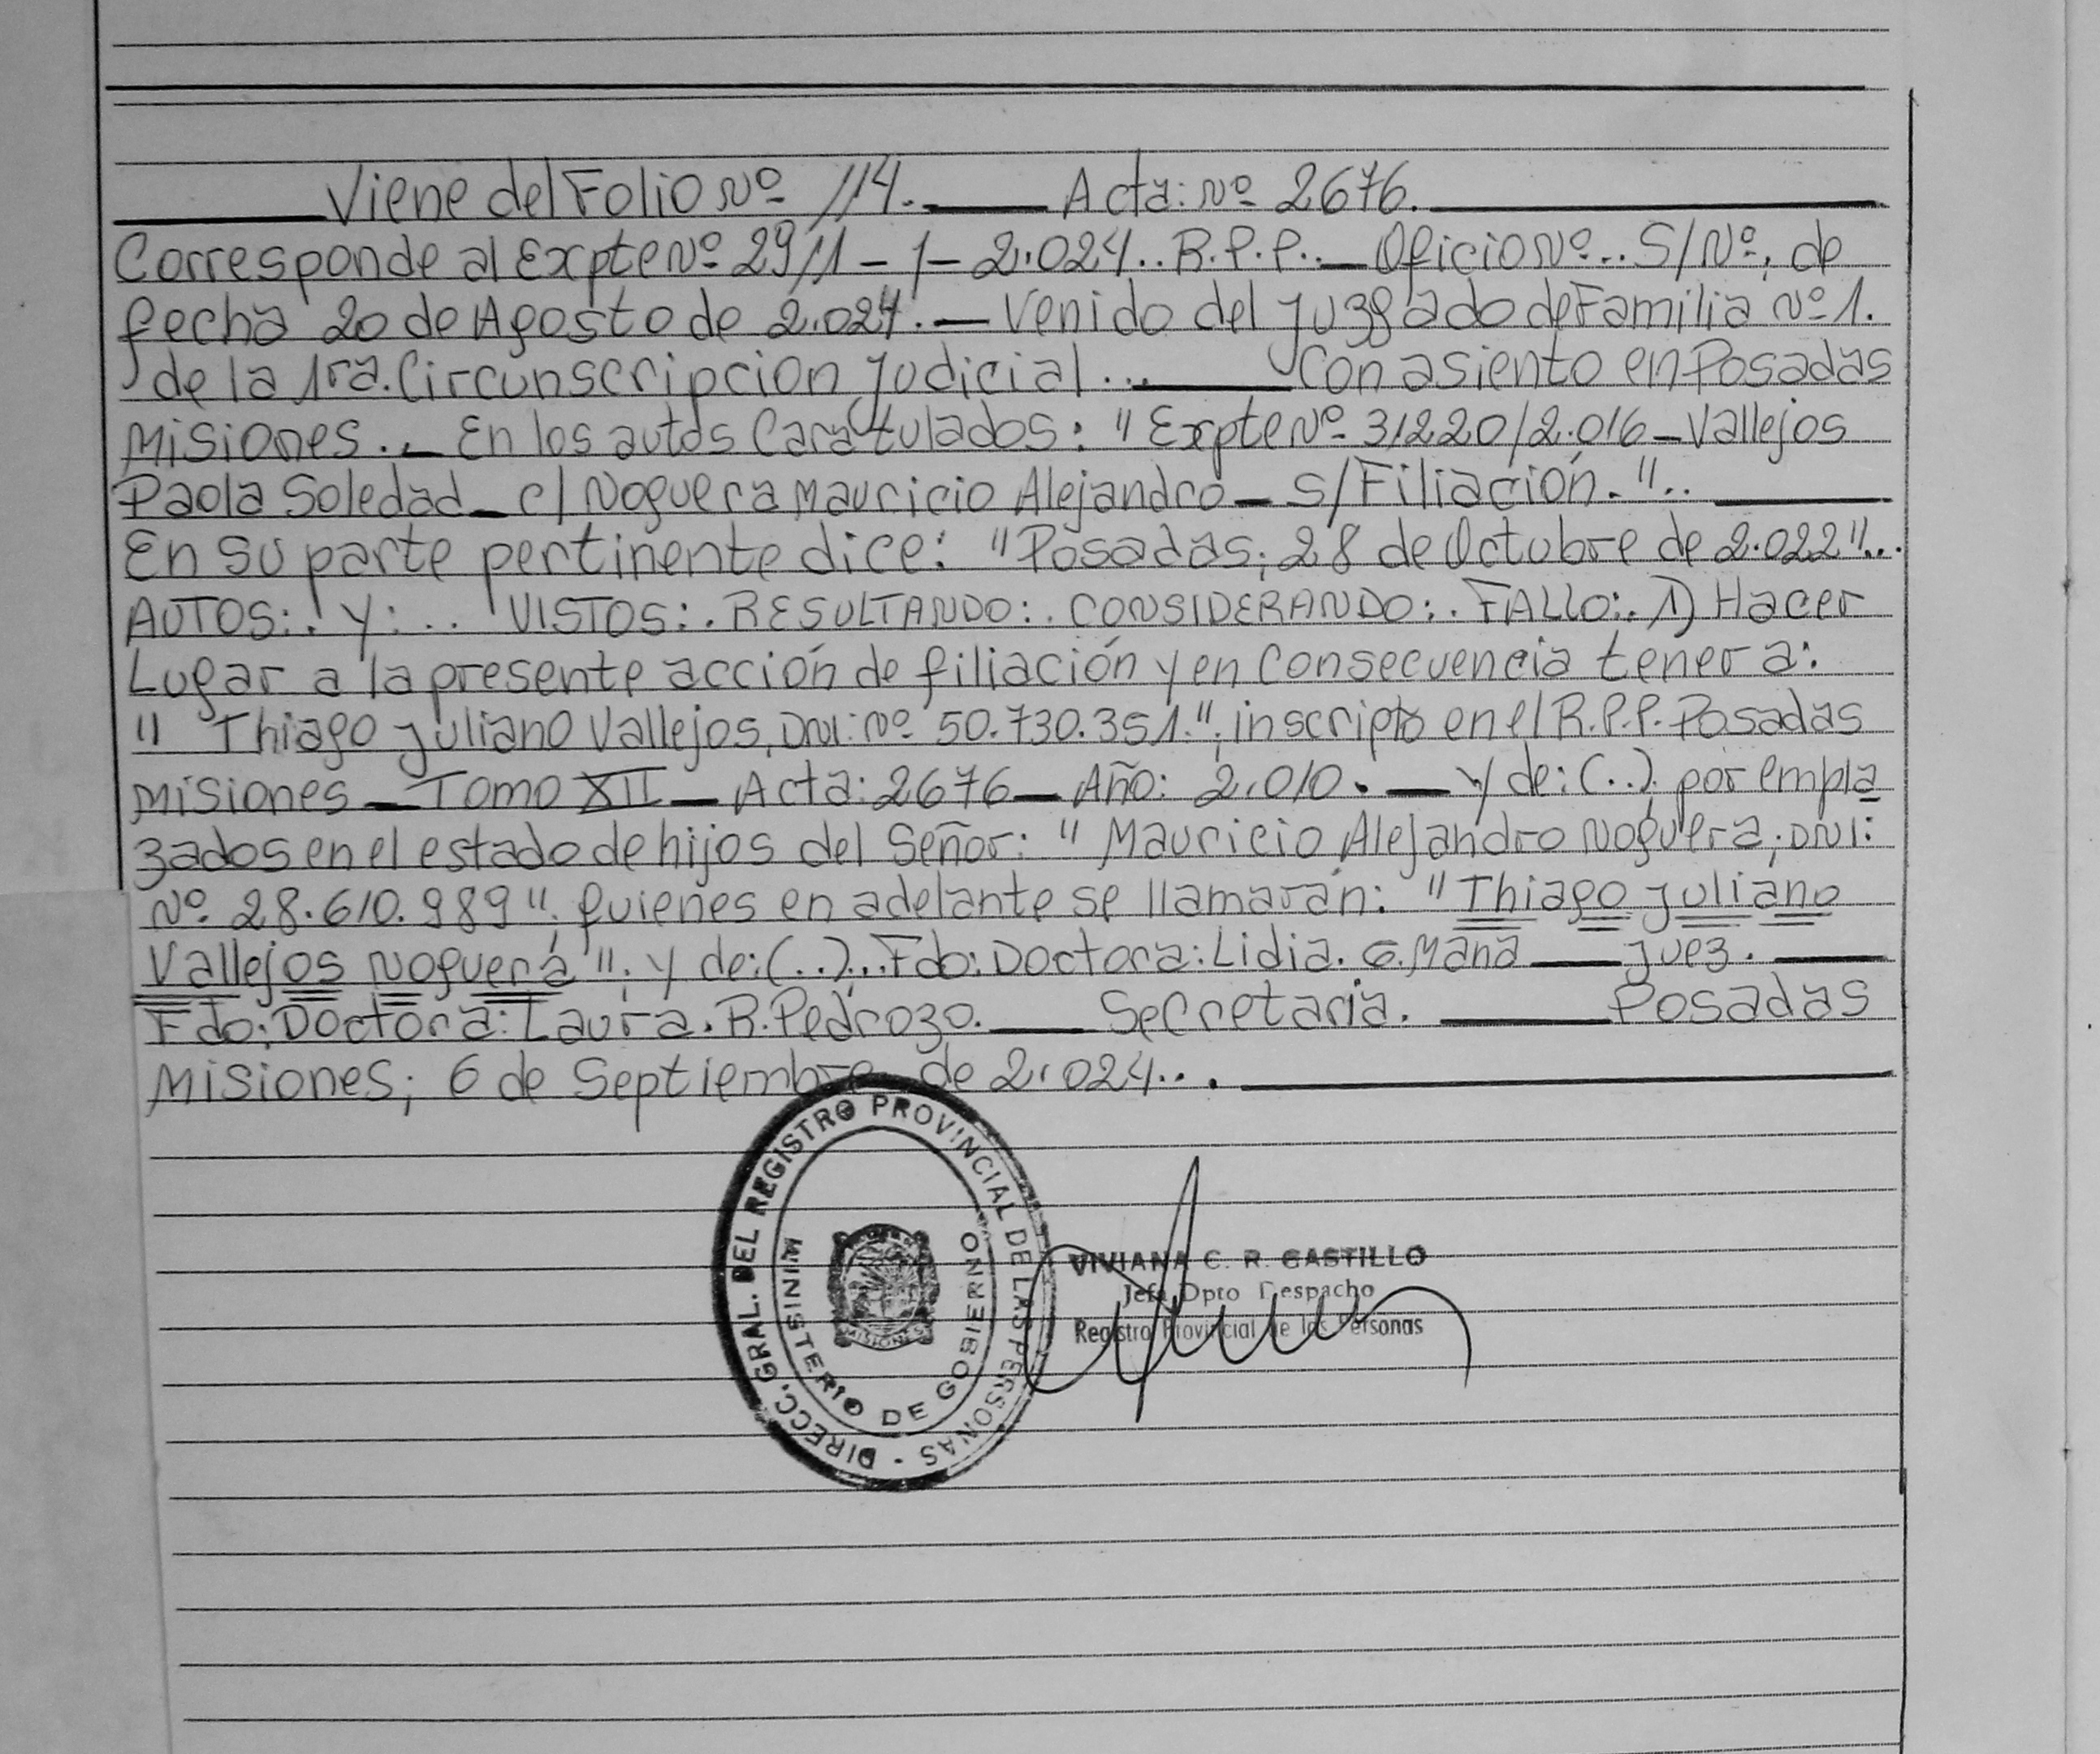 Viene del Folio Nº 114. Acta: Nº 2676.
Corresponde al Expte Nº 2911 - 1 - 2.024.. R.P.P.. Oficio Nº.. S/Nº, de
fecha 20 de Agosto de 2.024. - Venido del Juzgado de Familia Nº 1.
de la 1ra. Circunscripcion Judicial... Con asiento en Posadas
Misiones.. En los autos Caratulados: "Expte Nº 31220/2.016 - Vallejos
Paola Soledad - c/ Noguera Mauricio Alejandro - S/Filiación."..
En su parte pertinente dice: "Posadas, 28 de Octubre de 2.022"...
AUTOS:. Y:... VISTOS:. RESULTANDO:. CONSIDERANDO:. FALLO:. 1) Hacer
Lugar a la presente acción de filiación y en Consecuencia tener a:
" Thiago Juliano Vallejos, DNI: Nº 50.730.351.", inscripto en el R.P.P. Posadas
Misiones - Tomo XII - Acta: 2676 - Año: 2.010. - y de: (..). por empla
zados en el estado de hijos del Señor: " Mauricio Alejandro Noguera; DNI:
Nº 28.610.989". quienes en adelante se llamarán: "Thiago Juliano
Vallejos Noguera". y de: (..)... Fdo: Doctora: Lidia. G. Mana Juez.
Fdo: Doctora: Laura. R. Pedrozo. Secretaria. Posadas
Misiones; 6 de Septiembre de 2.024...
DIRECC. GRAL. DEL REGISTRO PROVINCIAL DE LAS PERSONAS -
MINISTERIO DE GOBIERNO
MISIONES
VIVIANA C. R. CASTILLO
Jefa Dpto Despacho
Registro Provincial de las Personas